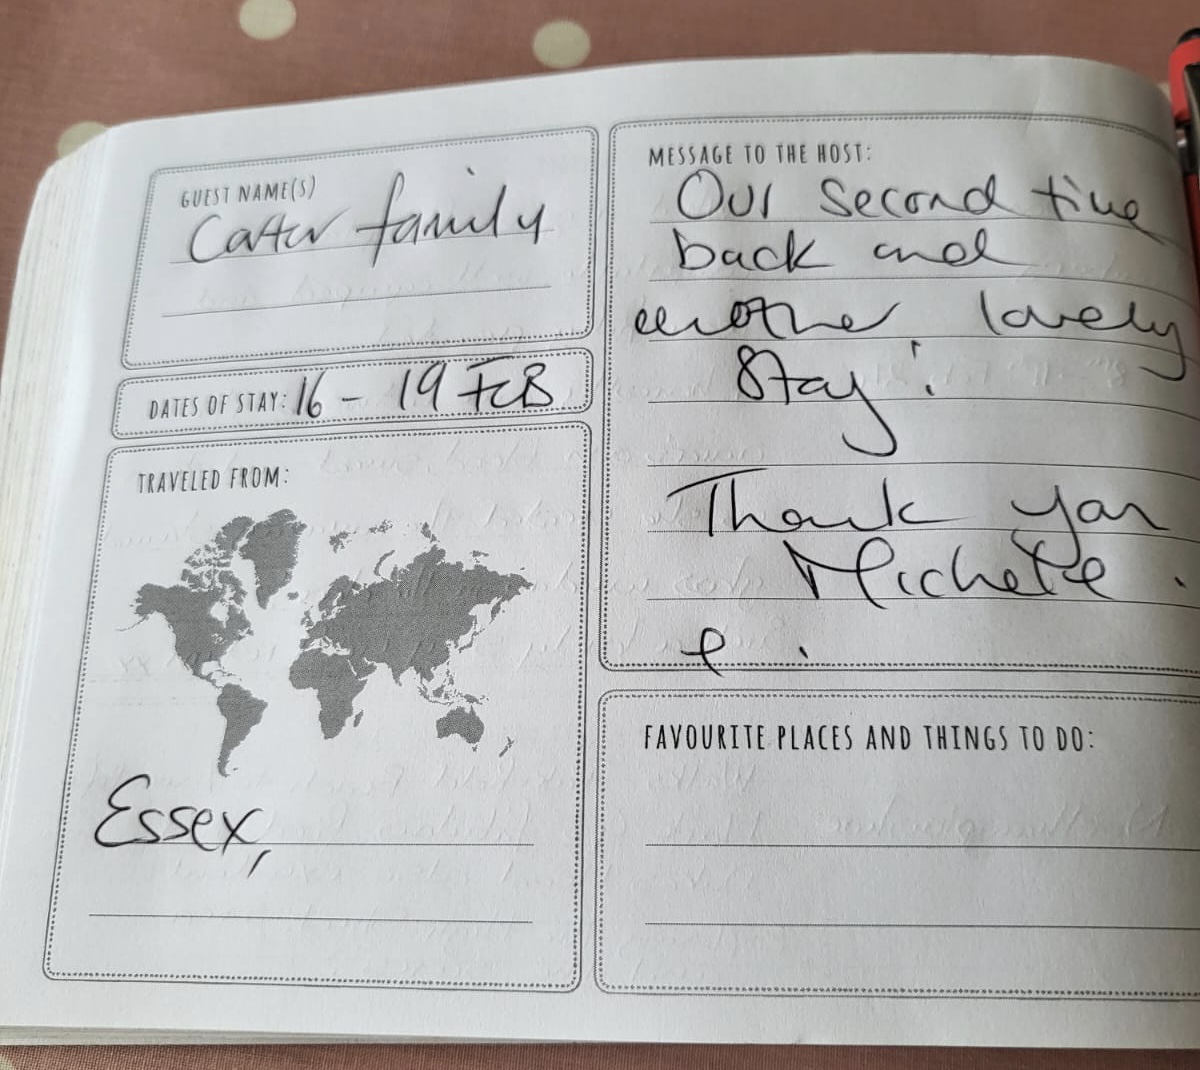 GUEST NAME(S)
Cater family
DATES OF STAY: 16 - 19 FEB
TRAVELED FROM:
Essex,
MESSAGE TO THE HOST:
Our second time
back and
another lovely
stay!
Thank you
Michelle.
FAVOURITE PLACES AND THINGS TO DO: